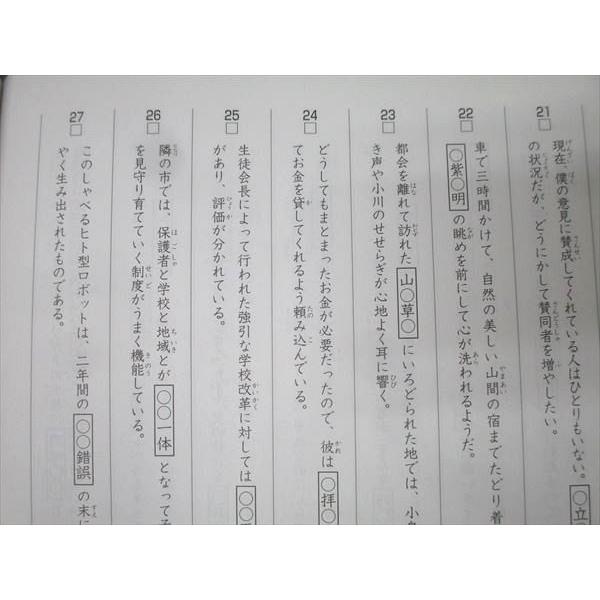 21
現在、僕の意見に賛成してくれている人はひとりもいない。○立
の状況だが、どうにかして賛同者を増やしたい。
22
車で三時間かけて、自然の美しい山間の宿までたどり着
○紫○明の眺めを前にして心が洗われるようだ。
23
都会を離れて訪れた山○草○にいろどられた地では、小鳥
き声や小川のせせらぎが心地よく耳に響く。
24
どうしてもまとまったお金が必要だったので、彼は○拝○
てお金を貸してくれるよう頼み込んでいる。
25
生徒会長によって行われた強引な学校改革に対しては○○
があり、評価が分かれている。
26
隣の市では、保護者と学校と地域とが○○一体となって子
を見守り育てていく制度がうまく機能している。
27
このしゃべるヒト型ロボットは、二年間の○○錯誤の末に
やく生み出されたものである。